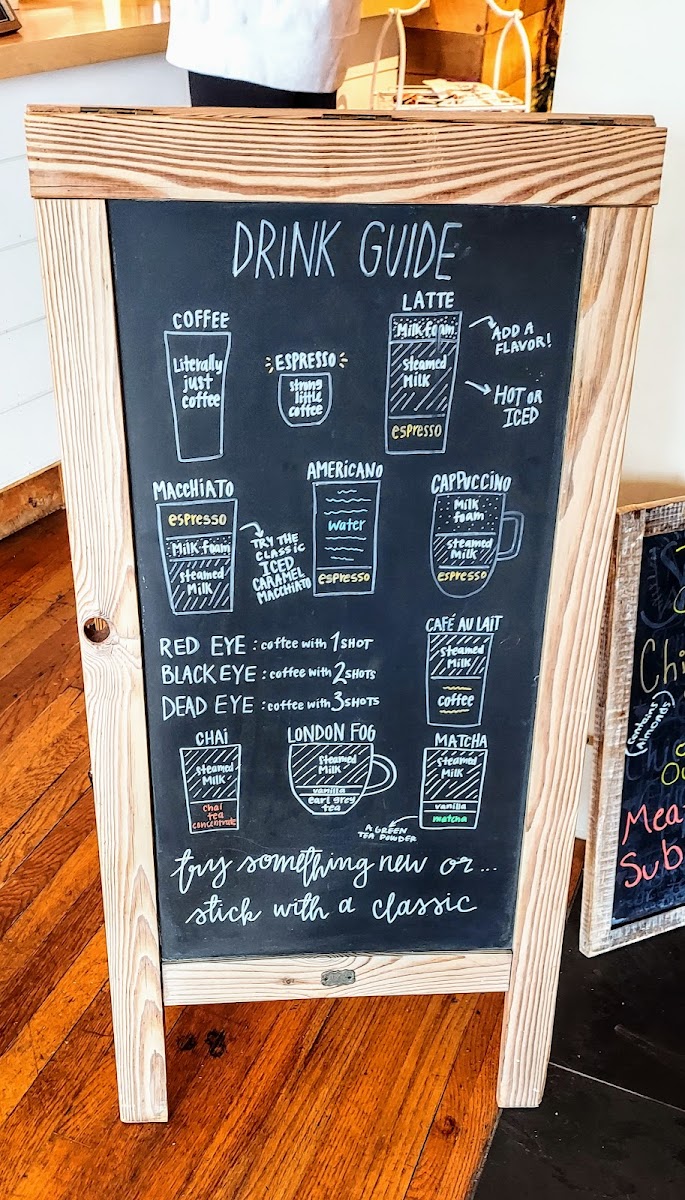 DRINK GUIDE
COFFEE
Literally
just
coffee
ESPRESSO
strong
little
coffee
LATTE
Milk foam
steamed
Milk
espresso
ADD A
FLAVOR!
HOT OR
ICED
MACCHIATO
espresso
Milk foam
steamed
Milk
TRY THE
CLASSIC
ICED
CARAMEL
MACCHIATO
AMERICANO
water
espresso
CAPPUCCINO
Milk
foam
steamed
Milk
espresso
RED EYE : coffee with 1 SHOT
BLACK EYE : coffee with 2 SHOTS
DEAD EYE : coffee with 3 SHOTS
CAFÉ AU LAIT
steamed
Milk
coffee
CHAI
steamed
Milk
chai
tea
concentrate
LONDON FOG
steamed
Milk
vanilla
earl grey
tea
MATCHA
steamed
Milk
vanilla
matcha
A GREEN
TEA POWDER
try something new or...
stick with a classic
Chi
(contains
Almonds)
Mea
Sub